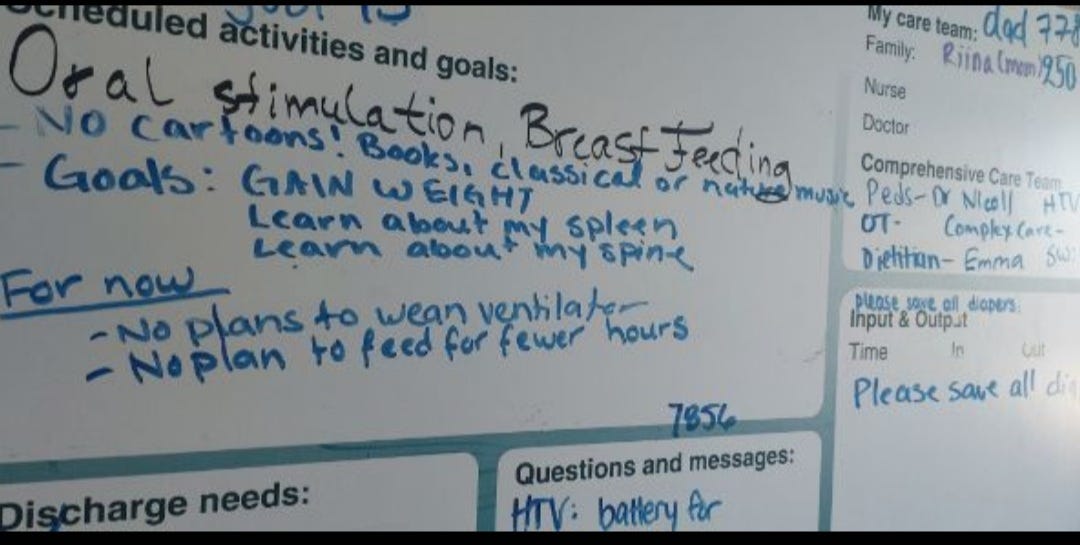 Scheduled activities and goals:
Oral stimulation, BreastFeeding
- No cartoons! Books, classical or nature music
- Goals: GAIN WEIGHT
Learn about my spleen
Learn about my spine
For now
- No plans to wean ventilator
- No plan to feed for fewer hours
7856
Discharge needs:
Questions and messages:
HTV: battery for
My care team: dad 778
Family: Riina (mom) 250
Nurse
Doctor
Comprehensive Care Team
Peds- Dr Nicoll HTV
OT- Complex Care-
Dietitian- Emma SW:
please save all diapers.
Input & Output
Time In Out
Please save all